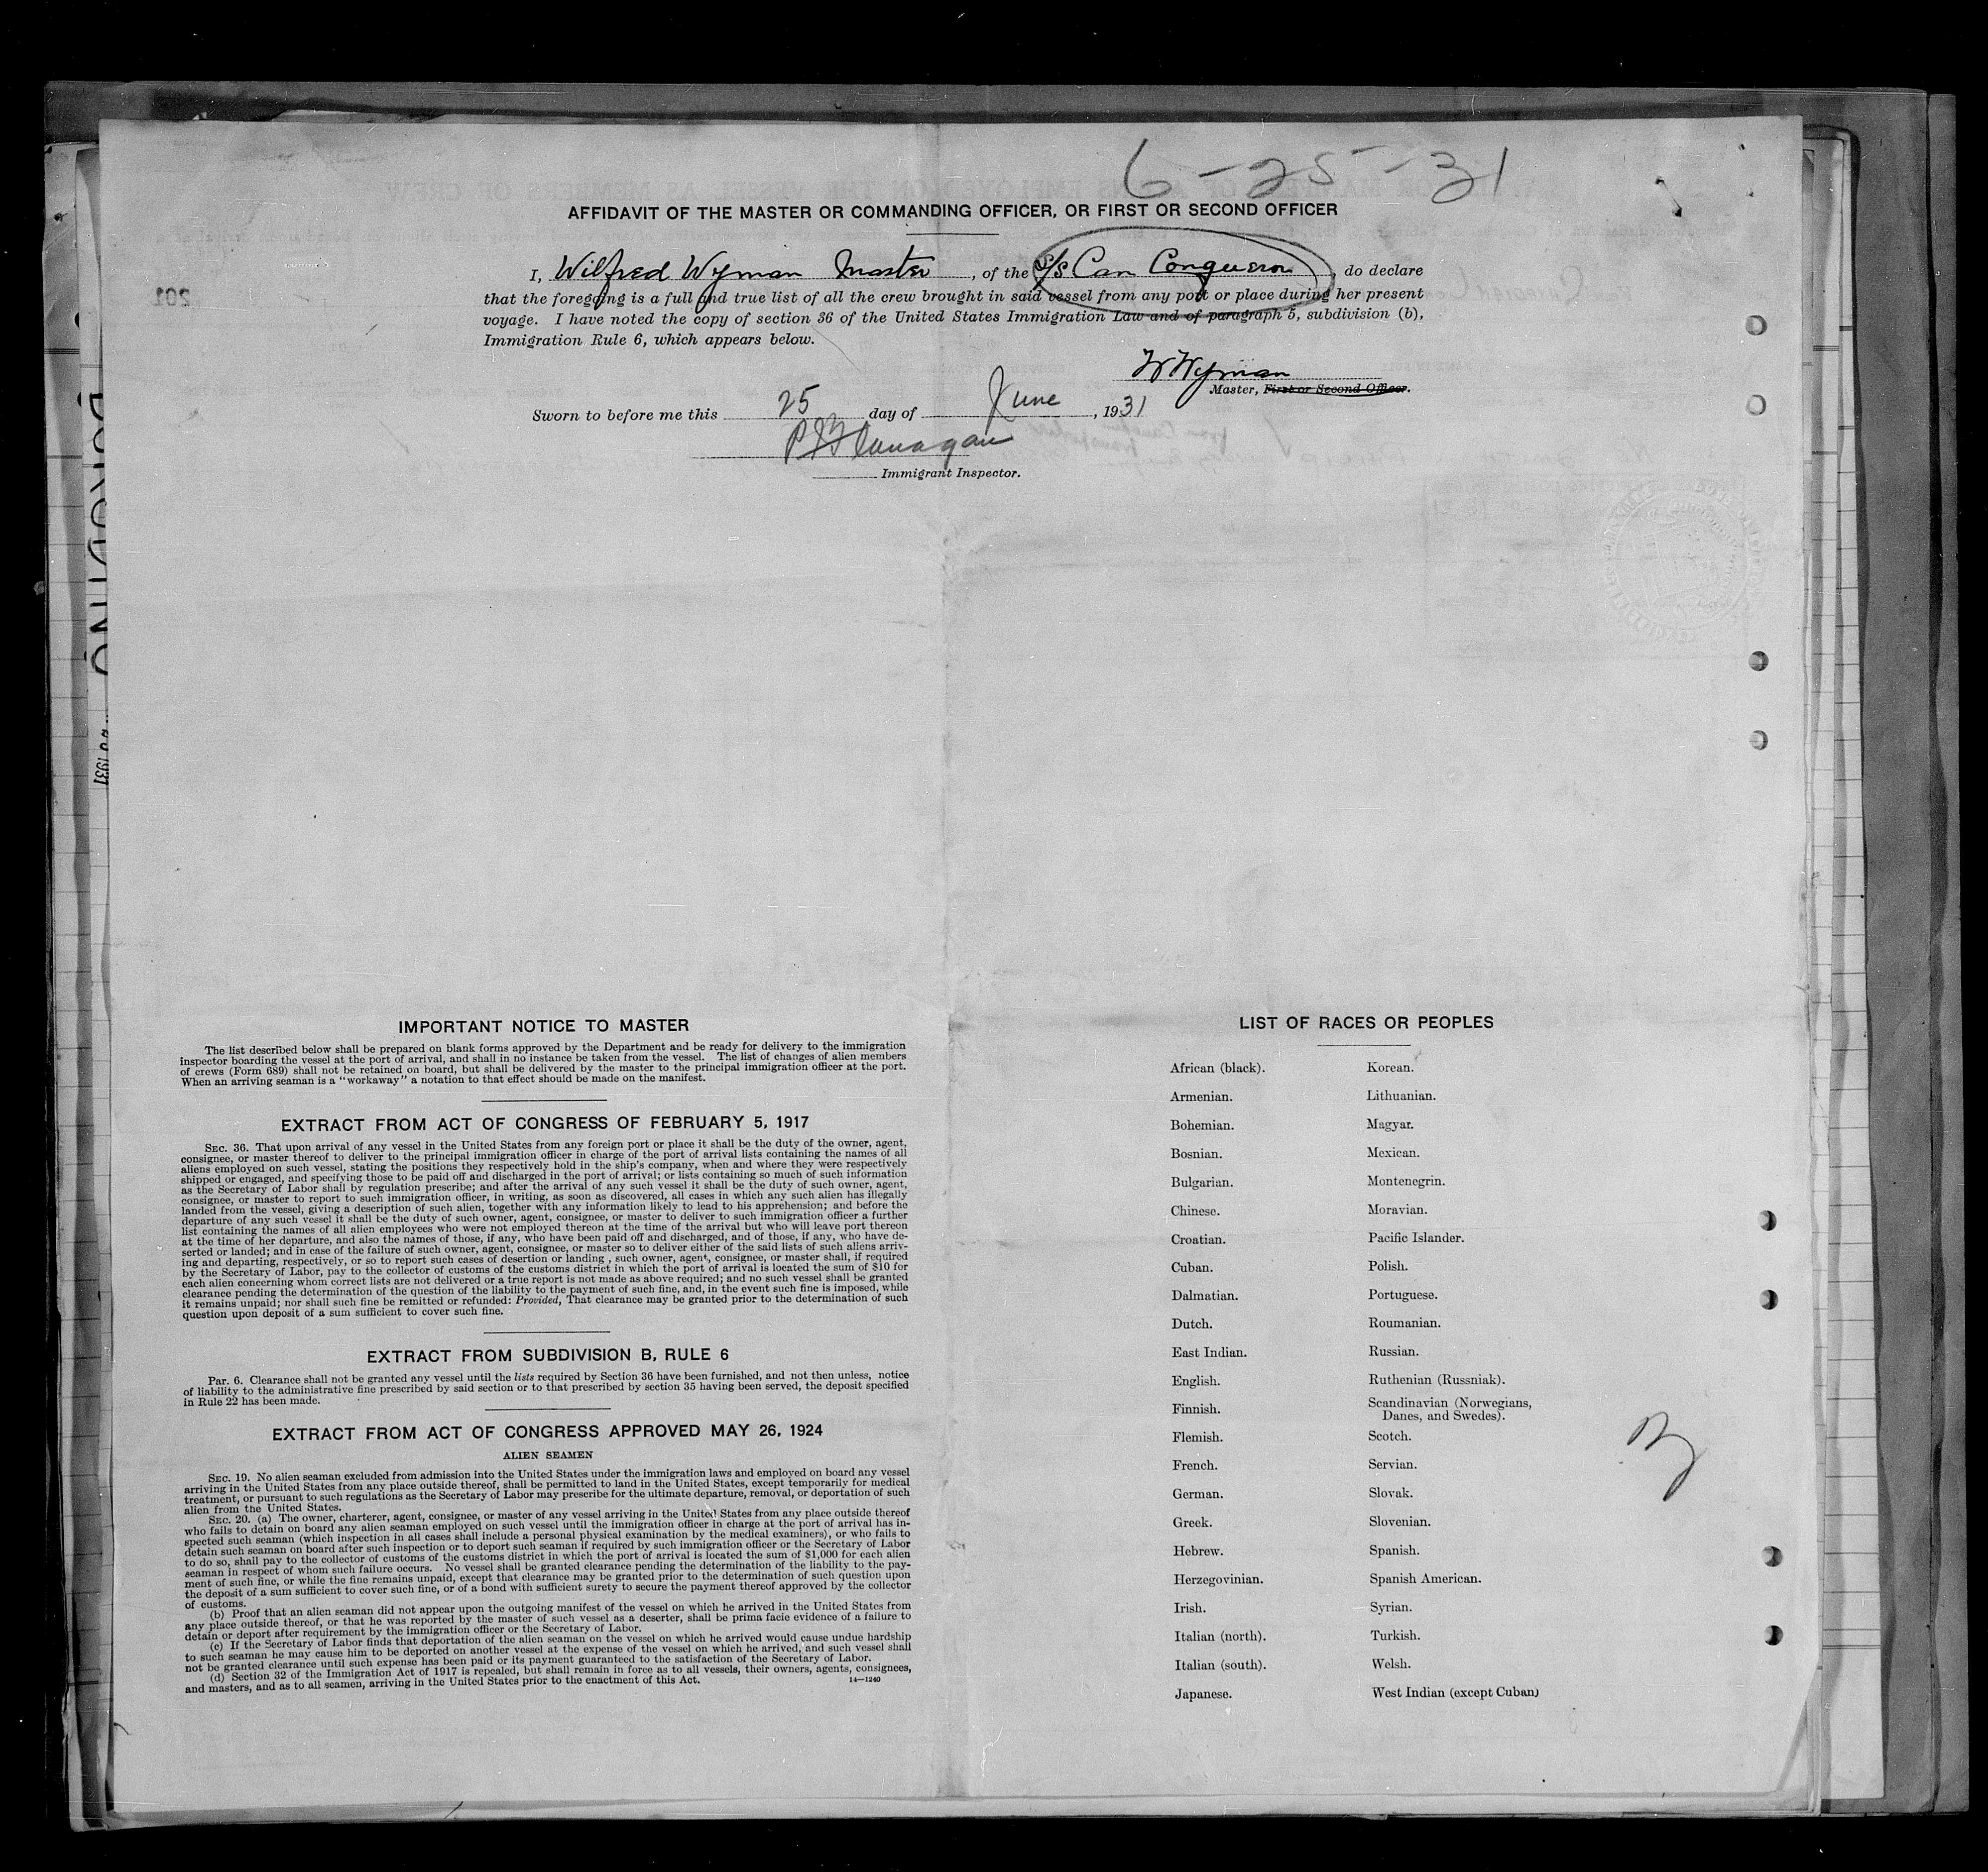 6-25-31
AFFIDAVIT OF THE MASTER OR COMMANDING OFFICER, OR FIRST OR SECOND OFFICER
I, Wilfred Wyman Master, of the S/S Can Conqueror, do declare
that the foregoing is a full and true list of all the crew brought in said vessel from any port or place during her present
voyage. I have noted the copy of section 36 of the United States Immigration Law and of paragraph 5, subdivision (b),
Immigration Rule 6, which appears below.
W Wyman
Master, First or Second Officer.
Sworn to before me this 25 day of June, 1931
P J Flanagan
Immigrant Inspector.
IMPORTANT NOTICE TO MASTER
The list described below shall be prepared on blank forms approved by the Department and be ready for delivery to the immigration
inspector boarding the vessel at the port of arrival, and shall in no instance be taken from the vessel. The list of changes of alien members
of crews (Form 689) shall not be retained on board, but shall be delivered by the master to the principal immigration officer at the port.
When an arriving seaman is a "workaway" a notation to that effect should be made on the manifest.
EXTRACT FROM ACT OF CONGRESS OF FEBRUARY 5, 1917
SEC. 36. That upon arrival of any vessel in the United States from any foreign port or place it shall be the duty of the owner, agent,
consignee, or master thereof to deliver to the principal immigration officer in charge of the port of arrival lists containing the names of all
aliens employed on such vessel, stating the positions they respectively hold in the ship's company, when and where they were respectively
shipped or engaged, and specifying those to be paid off and discharged in the port of arrival; or lists containing so much of such information
as the Secretary of Labor shall by regulation prescribe; and after the arrival of any such vessel it shall be the duty of such owner, agent,
consignee, or master to report to such immigration officer, in writing, as soon as discovered, all cases in which any such alien has illegally
landed from the vessel, giving a description of such alien, together with any information likely to lead to his apprehension; and before the
departure of any such vessel it shall be the duty of such owner, agent, consignee, or master to deliver to such immigration officer a further
list containing the names of all alien employees who were not employed thereon at the time of the arrival but who will leave port thereon
at the time of her departure, and also the names of those, if any, who have been paid off and discharged, and of those, if any, who have de-
serted or landed; and in case of the failure of such owner, agent, consignee, or master so to deliver either of the said lists of such aliens arriv-
ing and departing, respectively, or so to report such cases of desertion or landing , such owner, agent, consignee, or master shall, if required
by the Secretary of Labor, pay to the collector of customs of the customs district in which the port of arrival is located the sum of $10 for
each alien concerning whom correct lists are not delivered or a true report is not made as above required; and no such vessel shall be granted
clearance pending the determination of the question of the liability to the payment of such fine, and, in the event such fine is imposed, while
it remains unpaid; nor shall such fine be remitted or refunded: Provided, That clearance may be granted prior to the determination of such
question upon deposit of a sum sufficient to cover such fine.
EXTRACT FROM SUBDIVISION B, RULE 6
Par. 6. Clearance shall not be granted any vessel until the lists required by Section 36 have been furnished, and not then unless, notice
of liability to the administrative fine prescribed by said section or to that prescribed by section 35 having been served, the deposit specified
in Rule 22 has been made.
EXTRACT FROM ACT OF CONGRESS APPROVED MAY 26, 1924
ALIEN SEAMEN
SEC. 19. No alien seaman excluded from admission into the United States under the immigration laws and employed on board any vessel
arriving in the United States from any place outside thereof, shall be permitted to land in the United States, except temporarily for medical
treatment, or pursuant to such regulations as the Secretary of Labor may prescribe for the ultimate departure, removal, or deportation of such
alien from the United States.
SEC. 20. (a) The owner, charterer, agent, consignee, or master of any vessel arriving in the United States from any place outside thereof
who fails to detain on board any alien seaman employed on such vessel until the immigration officer in charge at the port of arrival has in-
spected such seaman (which inspection in all cases shall include a personal physical examination by the medical examiners), or who fails to
detain such seaman on board after such inspection or to deport such seaman if required by such immigration officer or the Secretary of Labor
to do so, shall pay to the collector of customs of the customs district in which the port of arrival is located the sum of $1,000 for each alien
seaman in respect of whom such failure occurs. No vessel shall be granted clearance pending the determination of the liability to the pay-
ment of such fine, or while the fine remains unpaid, except that clearance may be granted prior to the determination of such question upon
the deposit of a sum sufficient to cover such fine, or of a bond with sufficient surety to secure the payment thereof approved by the collector
of customs.
(b) Proof that an alien seaman did not appear upon the outgoing manifest of the vessel on which he arrived in the United States from
any place outside thereof, or that he was reported by the master of such vessel as a deserter, shall be prima facie evidence of a failure to
detain or deport after requirement by the immigration officer or the Secretary of Labor.
(c) If the Secretary of Labor finds that deportation of the alien seaman on the vessel on which he arrived would cause undue hardship
to such seaman he may cause him to be deported on another vessel at the expense of the vessel on which he arrived, and such vessel shall
not be granted clearance until such expense has been paid or its payment guaranteed to the satisfaction of the Secretary of Labor.
(d) Section 32 of the Immigration Act of 1917 is repealed, but shall remain in force as to all vessels, their owners, agents, consignees,
and masters, and as to all seamen, arriving in the United States prior to the enactment of this Act.
14—1240
LIST OF RACES OR PEOPLES
African (black).
Armenian.
Bohemian.
Bosnian.
Bulgarian.
Chinese.
Croatian.
Cuban.
Dalmatian.
Dutch.
East Indian.
English.
Finnish.
Flemish.
French.
German.
Greek.
Hebrew.
Herzegovinian.
Irish.
Italian (north).
Italian (south).
Japanese.
Korean.
Lithuanian.
Magyar.
Mexican.
Montenegrin.
Moravian.
Pacific Islander.
Polish.
Portuguese.
Roumanian.
Russian.
Ruthenian (Russniak).
Scandinavian (Norwegians,
Danes, and Swedes).
Scotch.
Servian.
Slovak.
Slovenian.
Spanish.
Spanish American.
Syrian.
Turkish.
Welsh.
West Indian (except Cuban)